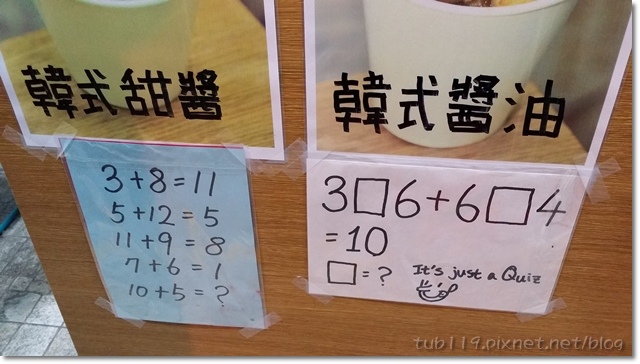 韓式甜醬
3+8=11
5+12=5
11+9=8
7+6=1
10+5=?
韓式醬油
3□6+6□4
=10
□=?
It's just a Quiz
tub119.pixnet.net/blog